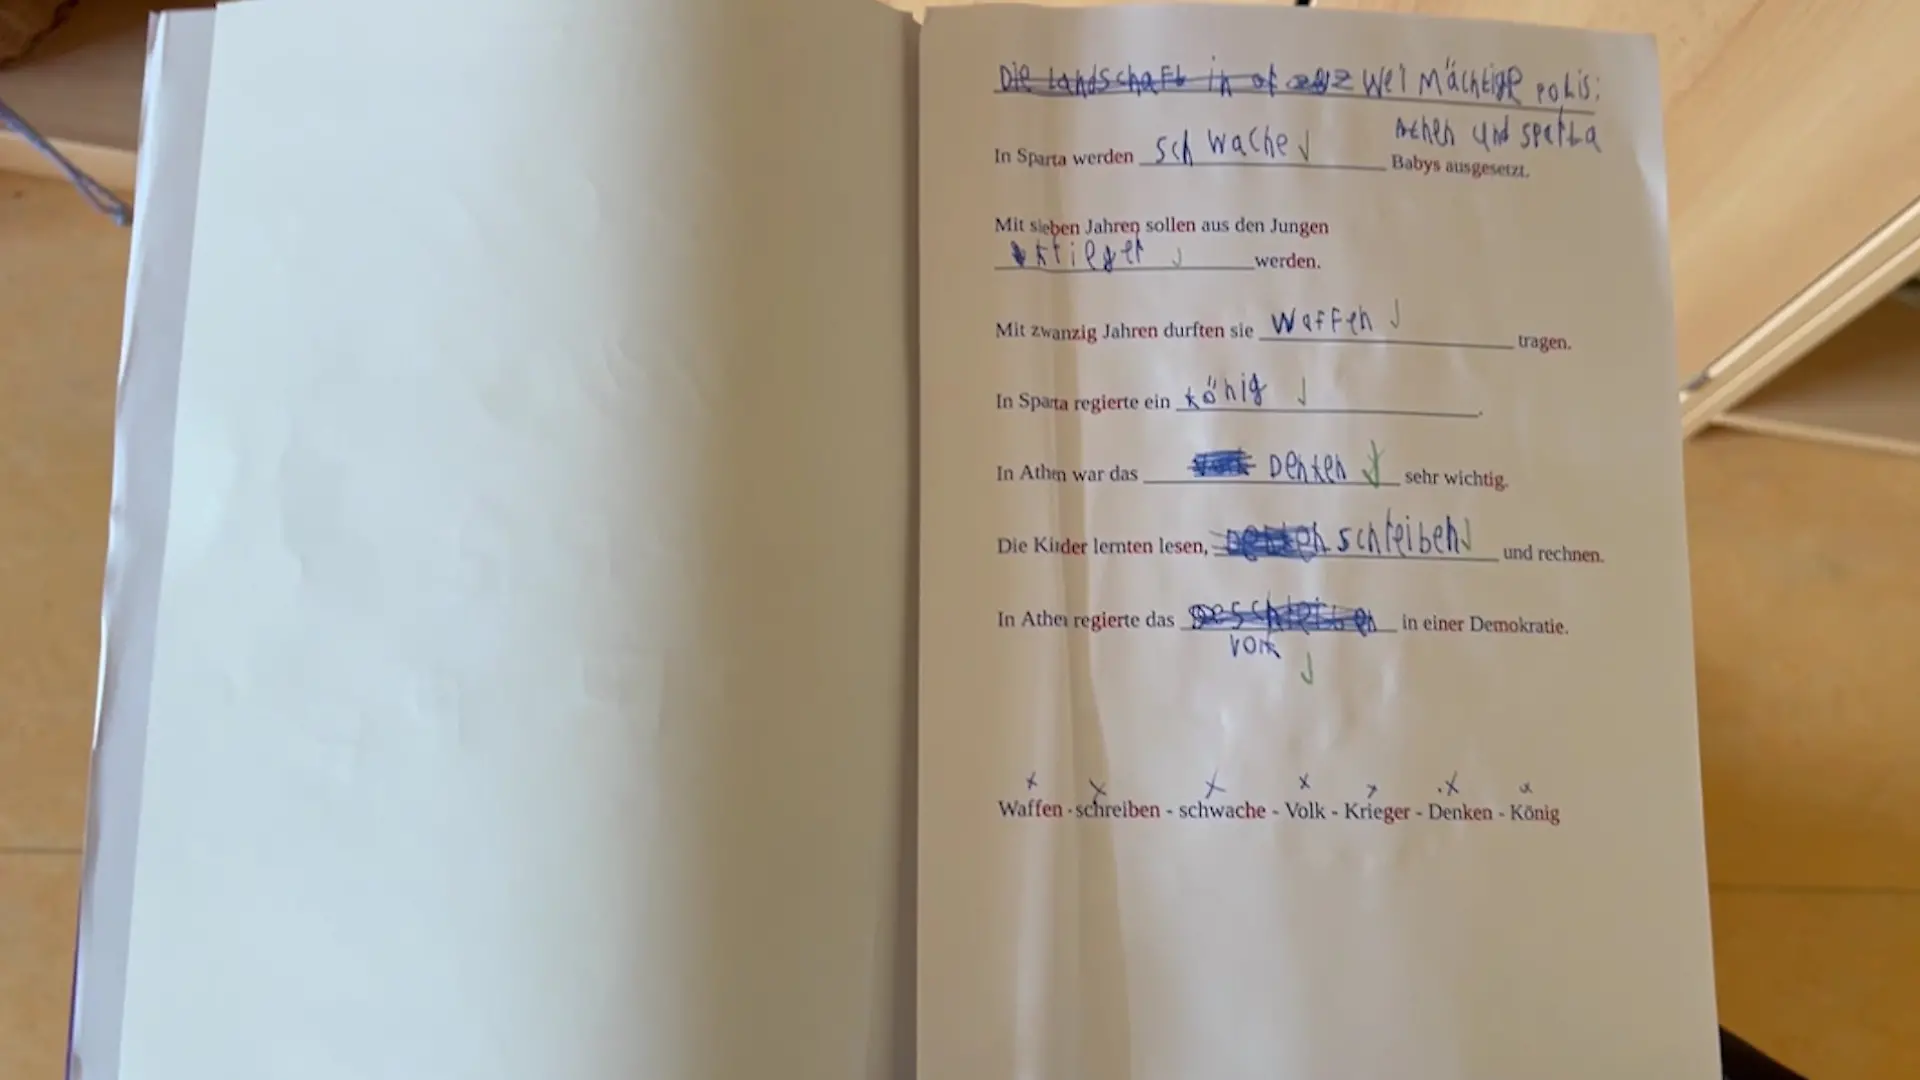 Die Landschaft in of zwei Mächtige polis:
Athen und sparta
In Sparta werden schwache Babys ausgesetzt.
Mit sieben Jahren sollen aus den Jungen
krieger werden.
Mit zwanzig Jahren durften sie Waffen tragen.
In Sparta regierte ein könig.
In Athen war das Denken sehr wichtig.
Die Kinder lernten lesen, Denken schreiben und rechnen.
In Athen regierte das in einer Demokratie.
volk
Waffen - schreiben - schwache - Volk - Krieger - Denken - König